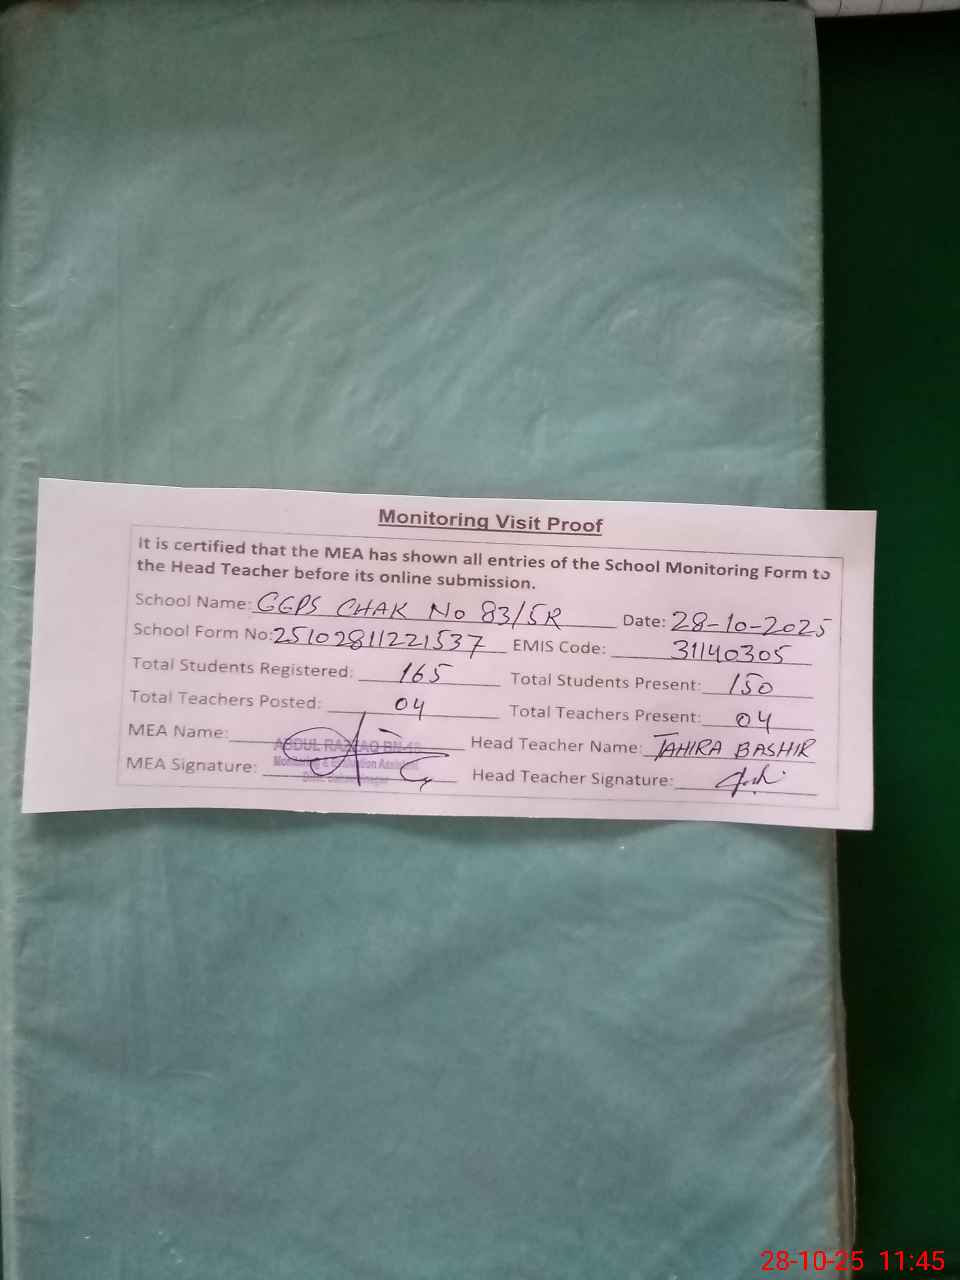 Monitoring Visit Proof
It is certified that the MEA has shown all entries of the School Monitoring Form to
the Head Teacher before its online submission.
School Name: GGPS CHAK No 83/5R Date: 28-10-2025
School Form No: 25102811221537 EMIS Code: 31140305
Total Students Registered: 165 Total Students Present: 150
Total Teachers Posted: 04 Total Teachers Present: 04
MEA Name: ABDUL RAZZAQ Head Teacher Name: TAHIRA BASHIR
Monitoring & Evaluation Assistant
MEA Signature: Head Teacher Signature:
28-10-25 11:45